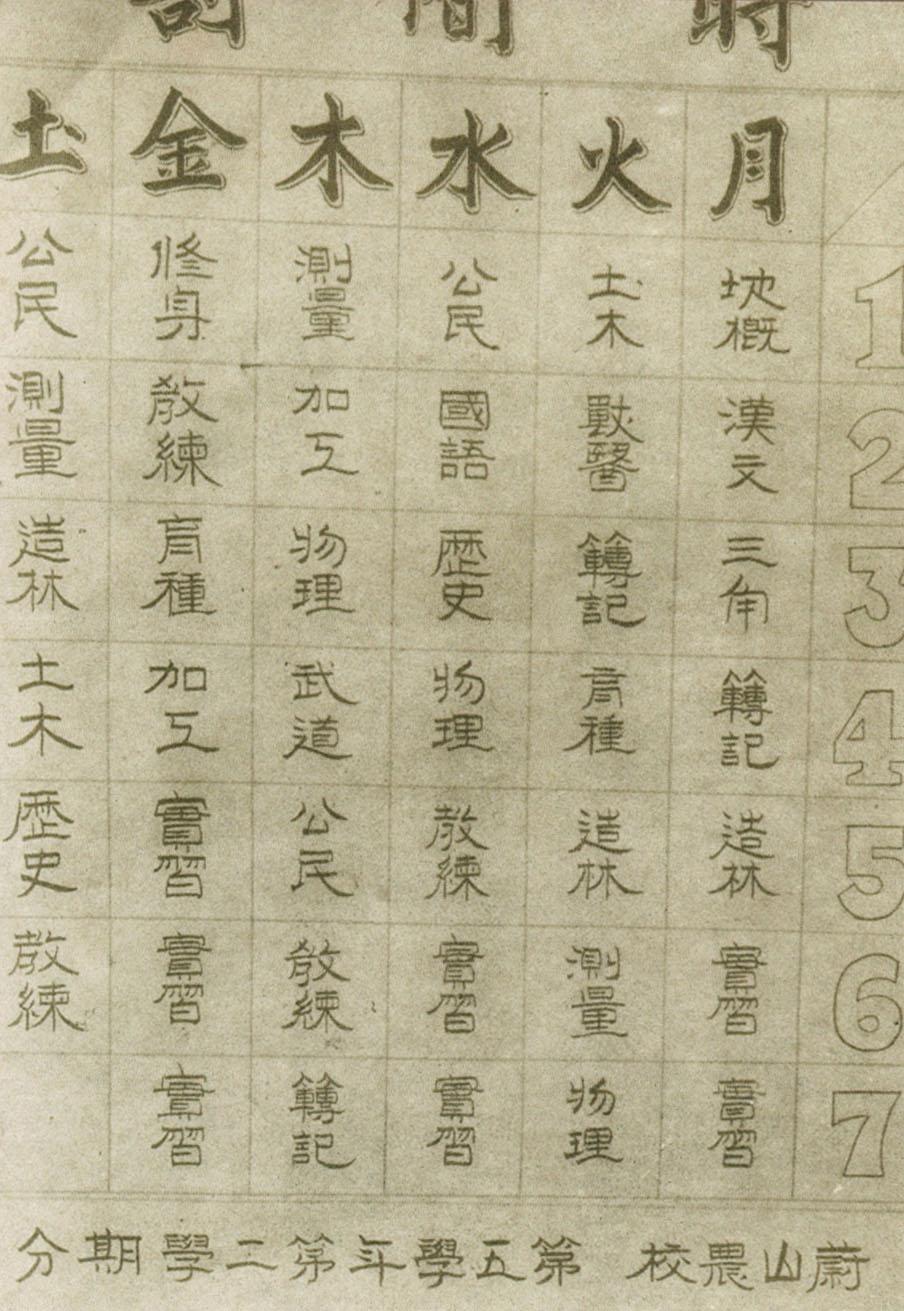 時間割
月 火 水 木 金 土
1 地概 土木 公民 測量 修身 公民
2 漢文 獸醫 國語 加工 教練 測量
3 三角 簿記 歴史 物理 育種 造林
4 簿記 育種 物理 武道 加工 土木
5 造林 造林 教練 公民 實習 歴史
6 實習 測量 實習 教練 實習 教練
7 實習 物理 實習 簿記 實習
蔚山農校 第五學年第二學期分